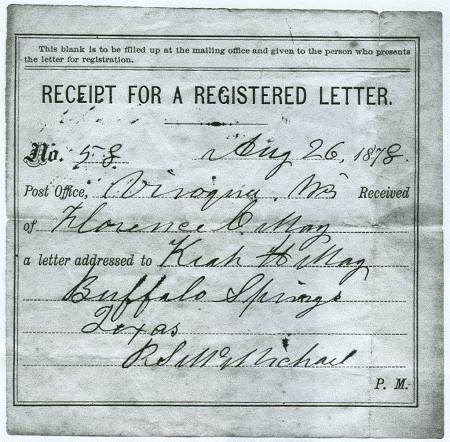 This blank is to be filled up at the mailing office and given to the person who presents
the letter for registration.
RECEIPT FOR A REGISTERED LETTER.
No. 58 Aug 26, 1878.
Post Office, Viroqua, Wis Received
of Florence C May
a letter addressed to Kiah H May
Buffalo Springs
Texas
R S McMichael
P. M.